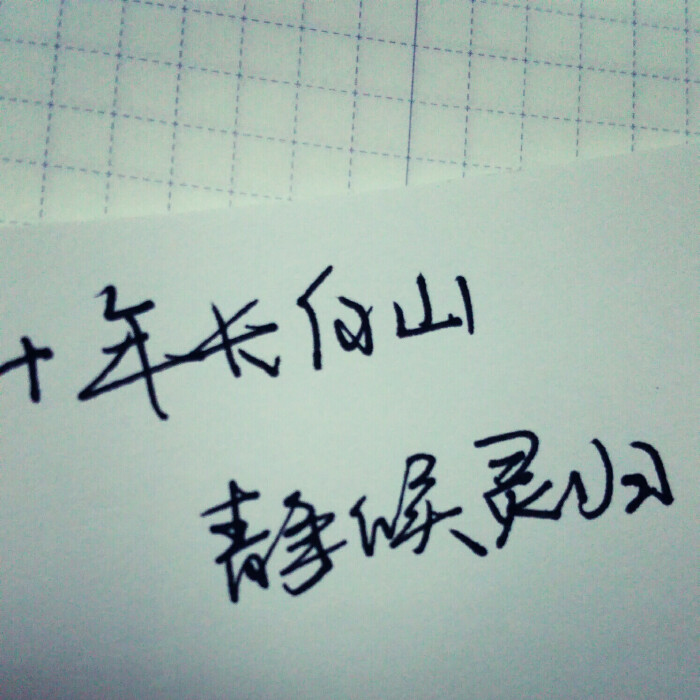 十年长白山
静候灵归